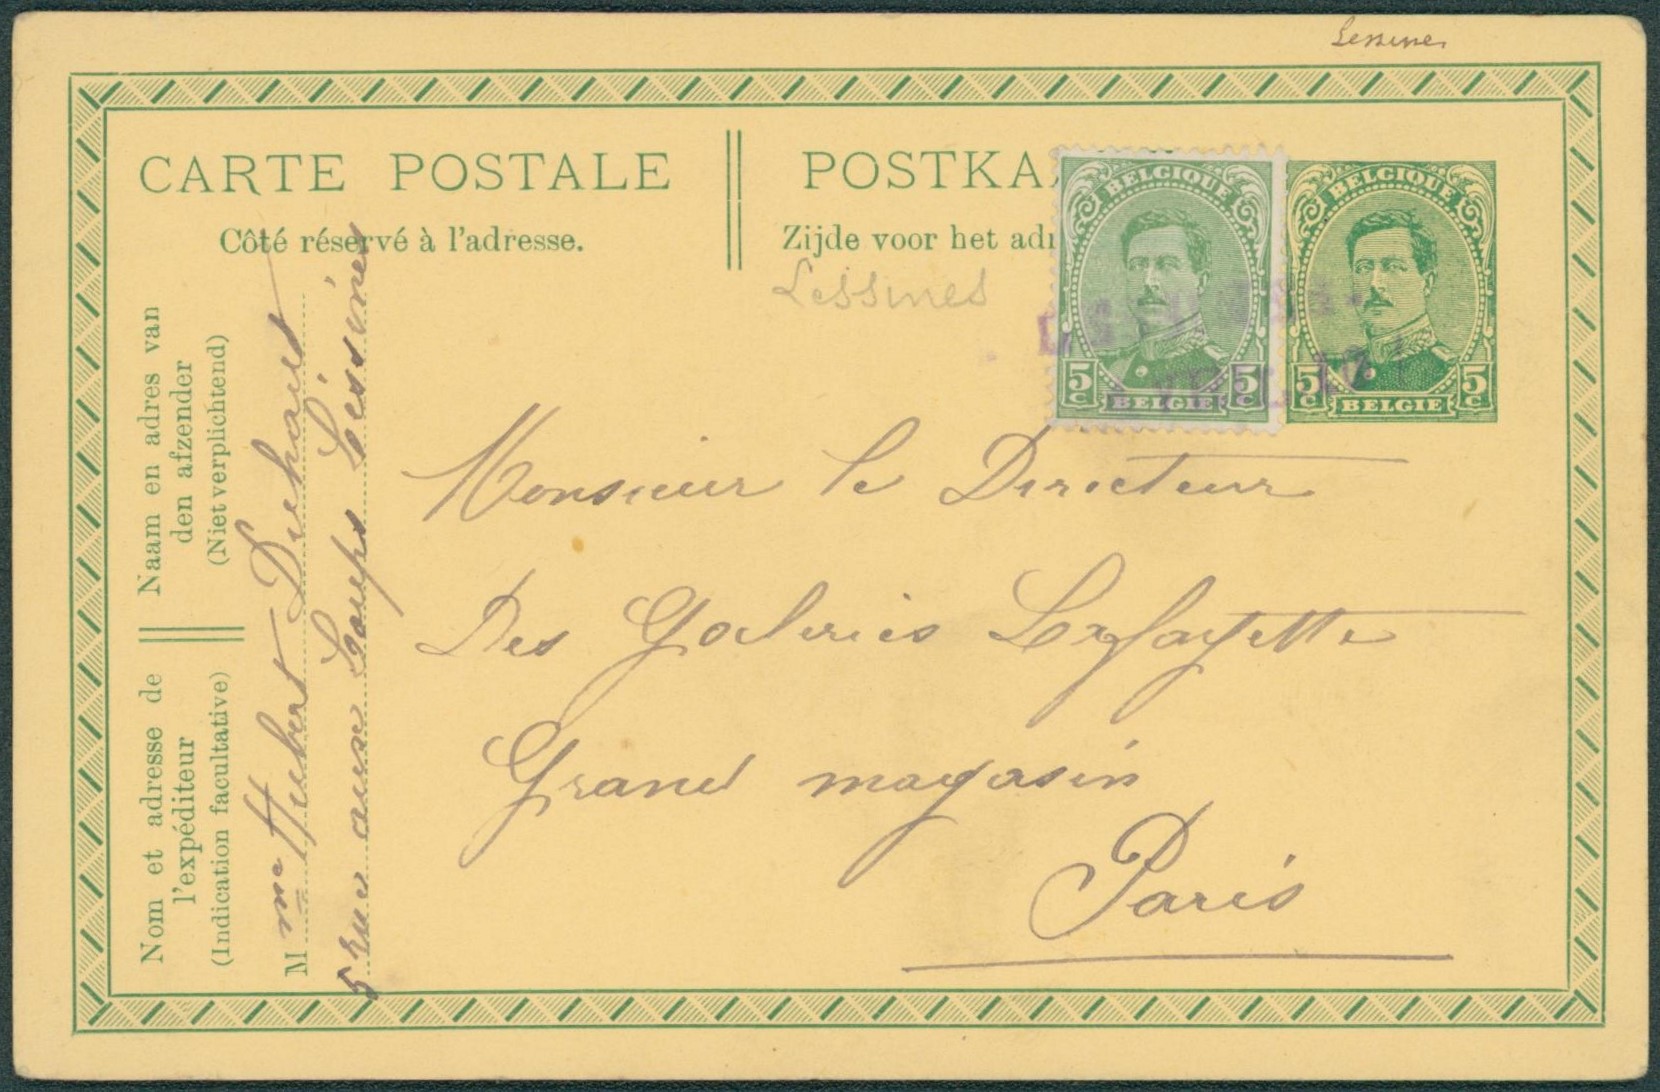 Lessines
CARTE POSTALE
Côté réservé à l'adresse.
POSTKA
Zijde voor het adr
Lessines
BELGIQUE
5c 5c
BELGIE
BELGIQUE
5c 5c
BELGIE
Monsieur le Directeur
Des Galeries Lafayette
Grand magasin
Paris
Naam en adres van
den afzender
(Niet verplichtend)
Nom et adresse de
l'expéditeur
(Indication facultative)
M me Hubert Duhaut
5 rue aux Loups Lessines